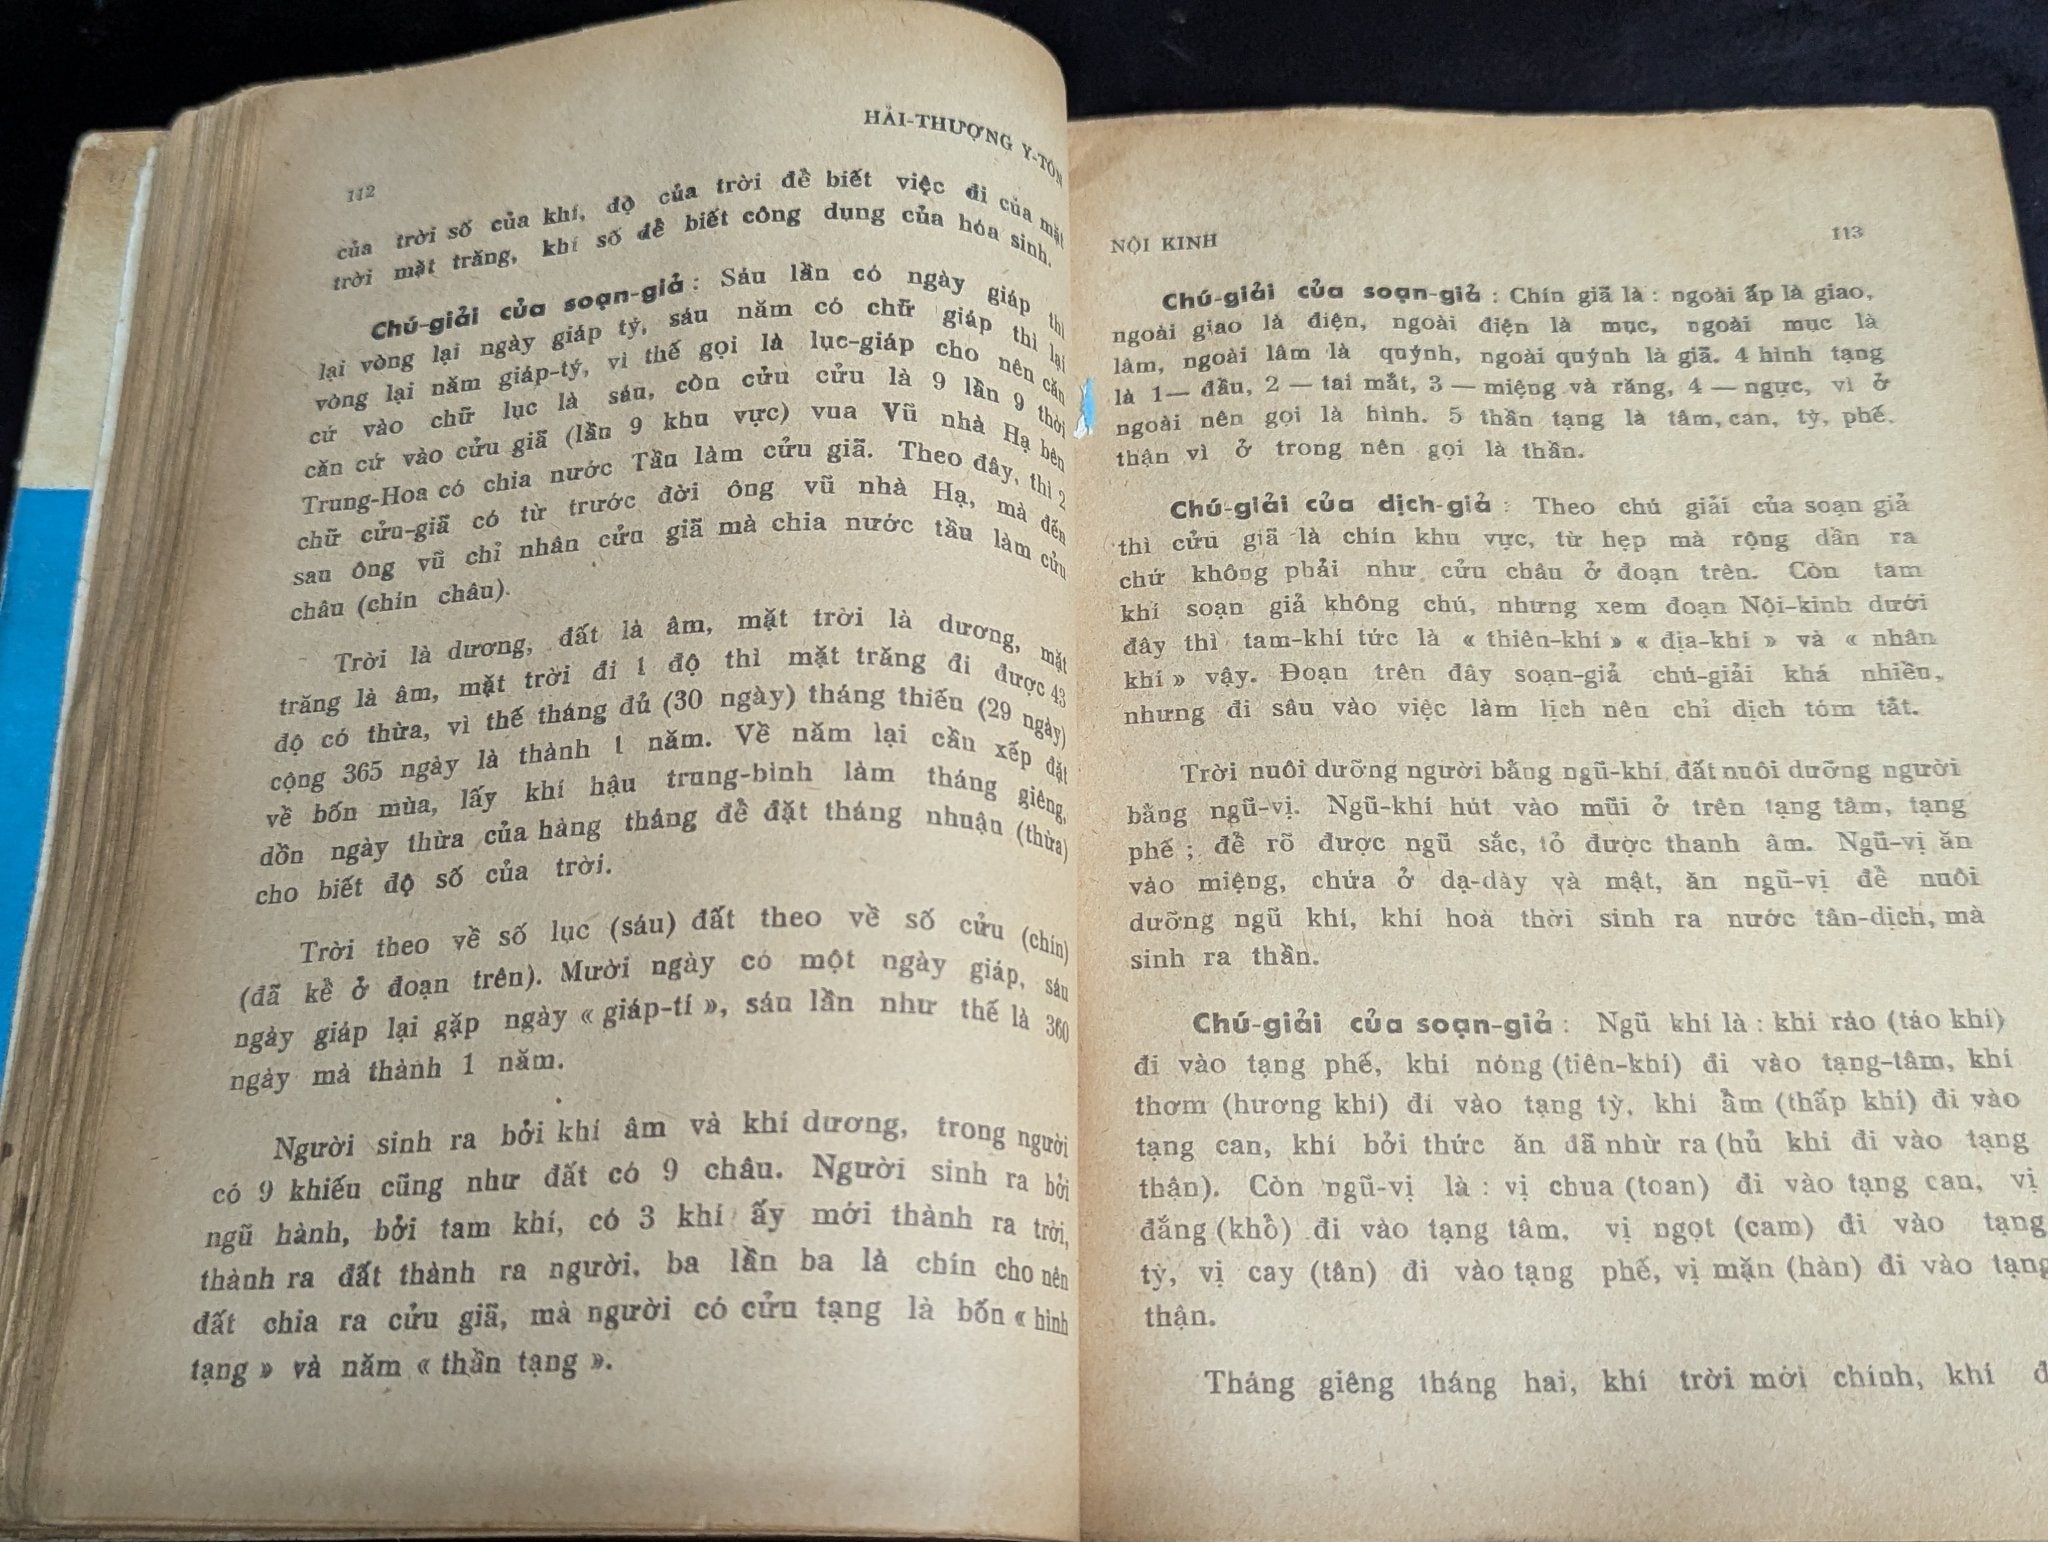 112
HẢI-THƯỢNG Y-TÔN
của trời số của khí, độ của trời để biết việc đi của mặt
trời mặt trăng, khí số để biết công dụng của hóa sinh.
Chú-giải của soạn-giả : Sáu lần có ngày giáp thì
lại vòng lại ngày giáp tý, sáu năm có chữ giáp thì lại
vòng lại năm giáp-tý, vì thế gọi là lục-giáp cho nên căn
cứ vào chữ lục là sáu, còn cửu cửu là 9 lần 9 thời
căn cứ vào cửu giã (lần 9 khu vực) vua Vũ nhà Hạ bên
Trung-Hoa có chia nước Tầu làm cửu giã. Theo đây, thì 2
chữ cửu-giã có từ trước đời ông vũ nhà Hạ, mà đến
sau ông vũ chỉ nhân cửu giã mà chia nước tầu làm cửu
châu (chín châu).
Trời là dương, đất là âm, mặt trời là dương, mặt
trăng là âm, mặt trời đi 1 độ thì mặt trăng đi được 43
độ có thừa, vì thế tháng đủ (30 ngày) tháng thiếu (29 ngày)
cộng 365 ngày là thành 1 năm. Về năm lại cần xếp đặt
về bốn mùa, lấy khí hậu trung-bình làm tháng giêng,
dồn ngày thừa của hàng tháng để đặt tháng nhuận (thừa)
cho biết độ số của trời.
Trời theo về số lục (sáu) đất theo về số cửu (chín)
(đã kể ở đoạn trên). Mười ngày có một ngày giáp, sáu
ngày giáp lại gặp ngày « giáp-tí », sáu lần như thế là 360
ngày mà thành 1 năm.
Người sinh ra bởi khí âm và khí dương, trong người
có 9 khiếu cũng như đất có 9 châu. Người sinh ra bởi
ngũ hành, bởi tam khí, có 3 khí ấy mới thành ra trời,
thành ra đất thành ra người, ba lần ba là chín cho nên
đất chia ra cửu giã, mà người có cửu tạng là bốn « hình
tạng » và năm « thần tạng ».
NỘI KINH
113
Chú-giải của soạn-giả : Chín giã là : ngoài ấp là giao,
ngoài giao là điện, ngoài điện là mục, ngoài mục là
lâm, ngoài lâm là quýnh, ngoài quýnh là giã. 4 hình tạng
là 1— đầu, 2 — tai mắt, 3 — miệng và răng, 4 — ngực, vì ở
ngoài nên gọi là hình. 5 thần tạng là tâm, can, tỳ, phế.
thận vì ở trong nên gọi là thần.
Chú-giải của dịch-giả : Theo chú giải của soạn giả
thì cửu giã là chín khu vực, từ hẹp mà rộng dần ra
chứ không phải như cửu châu ở đoạn trên. Còn tam
khí soạn giả không chú, nhưng xem đoạn Nội-kinh dưới
đây thì tam-khí tức là « thiên-khí » « địa-khí » và « nhân
khí » vậy. Đoạn trên đây soạn-giả chú-giải khá nhiều,
nhưng đi sâu vào việc làm lịch nên chỉ dịch tóm tắt.
Trời nuôi dưỡng người bằng ngũ-khí, đất nuôi dưỡng người
bằng ngũ-vị. Ngũ-khí hút vào mũi ở trên tạng tâm, tạng
phế ; để rõ được ngũ sắc, tỏ được thanh âm. Ngũ-vị ăn
vào miệng, chứa ở dạ-dày và mật, ăn ngũ-vị để nuôi
dưỡng ngũ khí, khí hoà thời sinh ra nước tân-dịch, mà
sinh ra thần.
Chú-giải của soạn-giả : Ngũ khí là : khí ráo (táo khí)
đi vào tạng phế, khí nóng (tiên-khí) đi vào tạng-tâm, khí
thơm (hương khí) đi vào tạng tỳ, khí ẩm (thấp khí) đi vào
tạng can, khí bởi thức ăn đã nhừ ra (hủ khí đi vào tạng
thận). Còn ngũ-vị là : vị chua (toan) đi vào tạng can, vị
đắng (khổ) đi vào tạng tâm, vị ngọt (cam) đi vào tạng
tỳ, vị cay (tân) đi vào tạng phế, vị mặn (hàn) đi vào tạng
thận.
Tháng giêng tháng hai, khí trời mới chính, khí